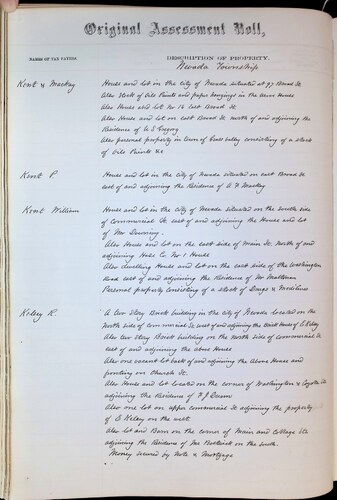 Original Assessment Roll,
NAMES OF TAX PAYERS.
DESCRIPTION OF PROPERTY.
Nevada Township
Kent & Mackey House and lot in the city of Nevada situated at 97 Broad St
Also Stock of Oils Paints and paper hangings in the above House
Also House and lot No 16 East Broad St
Also House and lot on east Broad St north of and adjoining the
Residence of A Gregory
Also personal property in town of consisting of a stock
of Oils Paints &c
Kent P House and lot in the city of Nevada situated on east Broad St
east of and adjoining the Residence of Mackey
Kent William House and lot in the city of Nevada situated on the south side
of Commercial St east of and adjoining the House and lot
of Mr
Also House and lot on the east side of Main St north of and
adjoining Hose Co No 1 House
Also dwelling House and lot on the east side of the Washington
Road east of and adjoining the Residence of Mr
Personal property consisting of a stock of Drugs & Medicine
Kelsey E. A two Story Brick building in the city of Nevada located on the
North side of commercial St west of and adjoining the Brick House of E Kelsey
Also two Story Brick building on the North side of commercial St
west of and adjoining the above House
Also one vacant lot back of and adjoining the above House and
fronting on Church St.
Also House and lot located on the corner of Washington & Coyote St
adjoining the Residence of
Also one lot on upper commercial St adjoining the property
of E Kelsey on the west
Also lot and Barn on the corner of Main and Cottage Sts
adjoining the Residence of Mr on the south
Money secured by note & mortgage